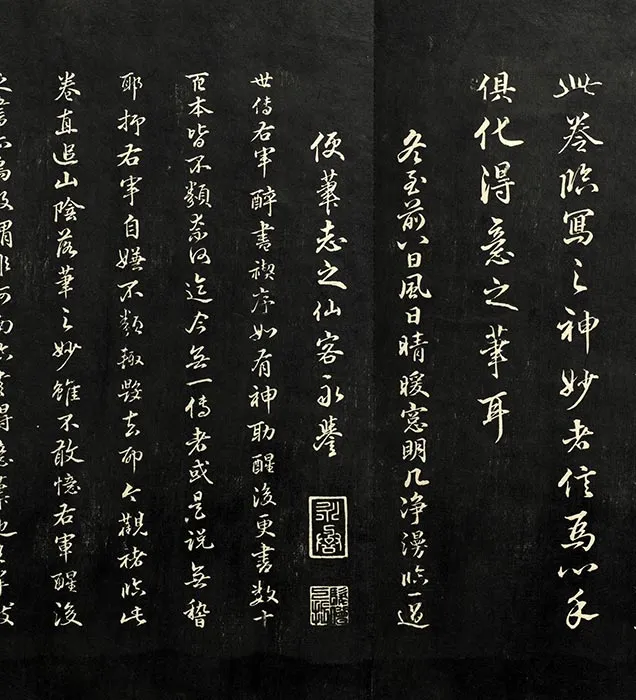 此卷臨寫之神妙者信為心手
俱化得意之筆耳
冬至前八日風日晴暖窓明几净漫臨一過
便筆志之仙客永譽
世傳右軍醉書禊序如有神助醒後更書數十
百本皆不類奈何迄今無一傳者或是說無稽
耶抑右軍自嫌不類輒毀去耶今觀褚臨此
卷直追山陰落筆之妙雖不敢憶右軍醒後